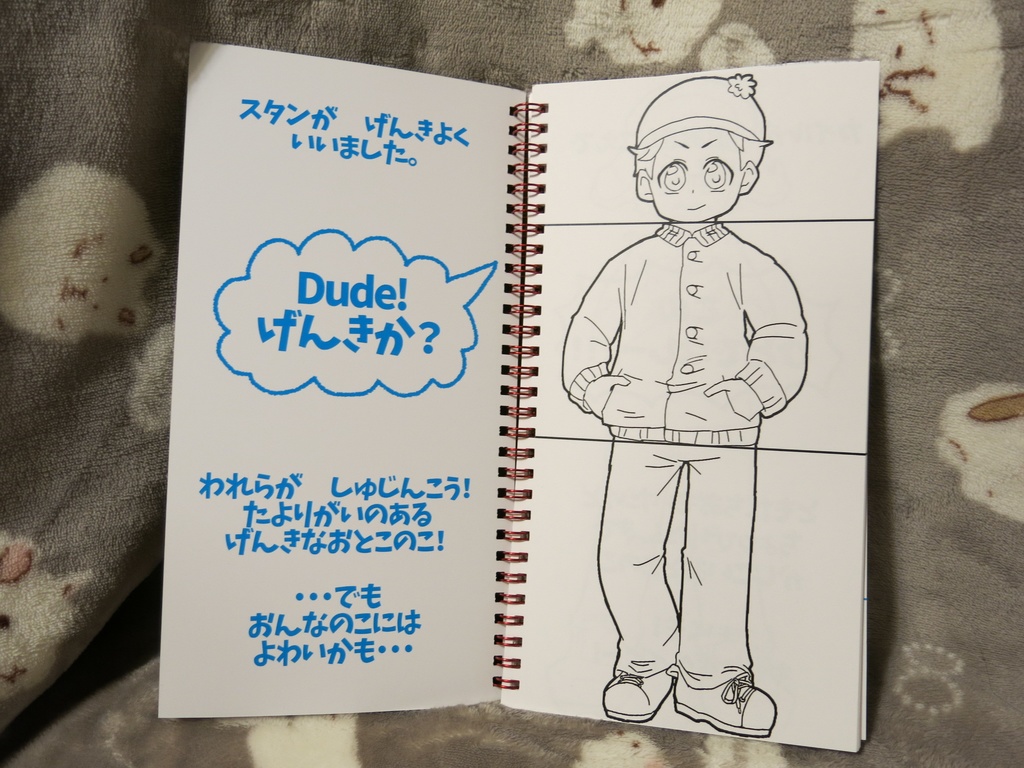 スタンが　げんきよく
いいました。
Dude!
げんきか?
われらが　しゅじんこう!
たよりがいのある
げんきなおとこのこ!
・・・でも
おんなのこには
よわいかも・・・